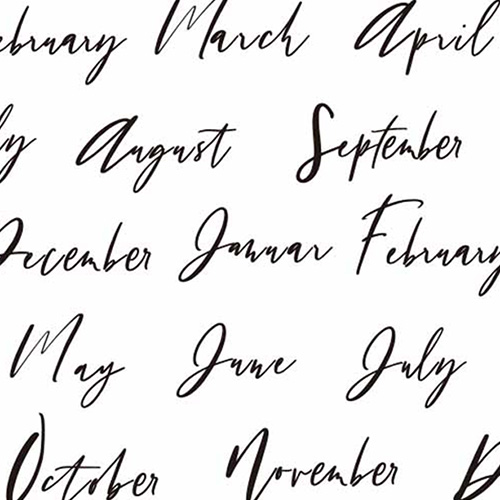 ebruary March April
ly August September
December Januar February
May June July
October November D